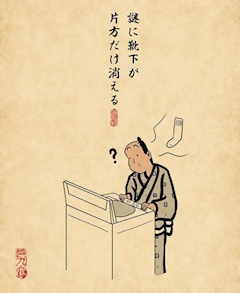 謎に靴下が
片方だけ消える
?